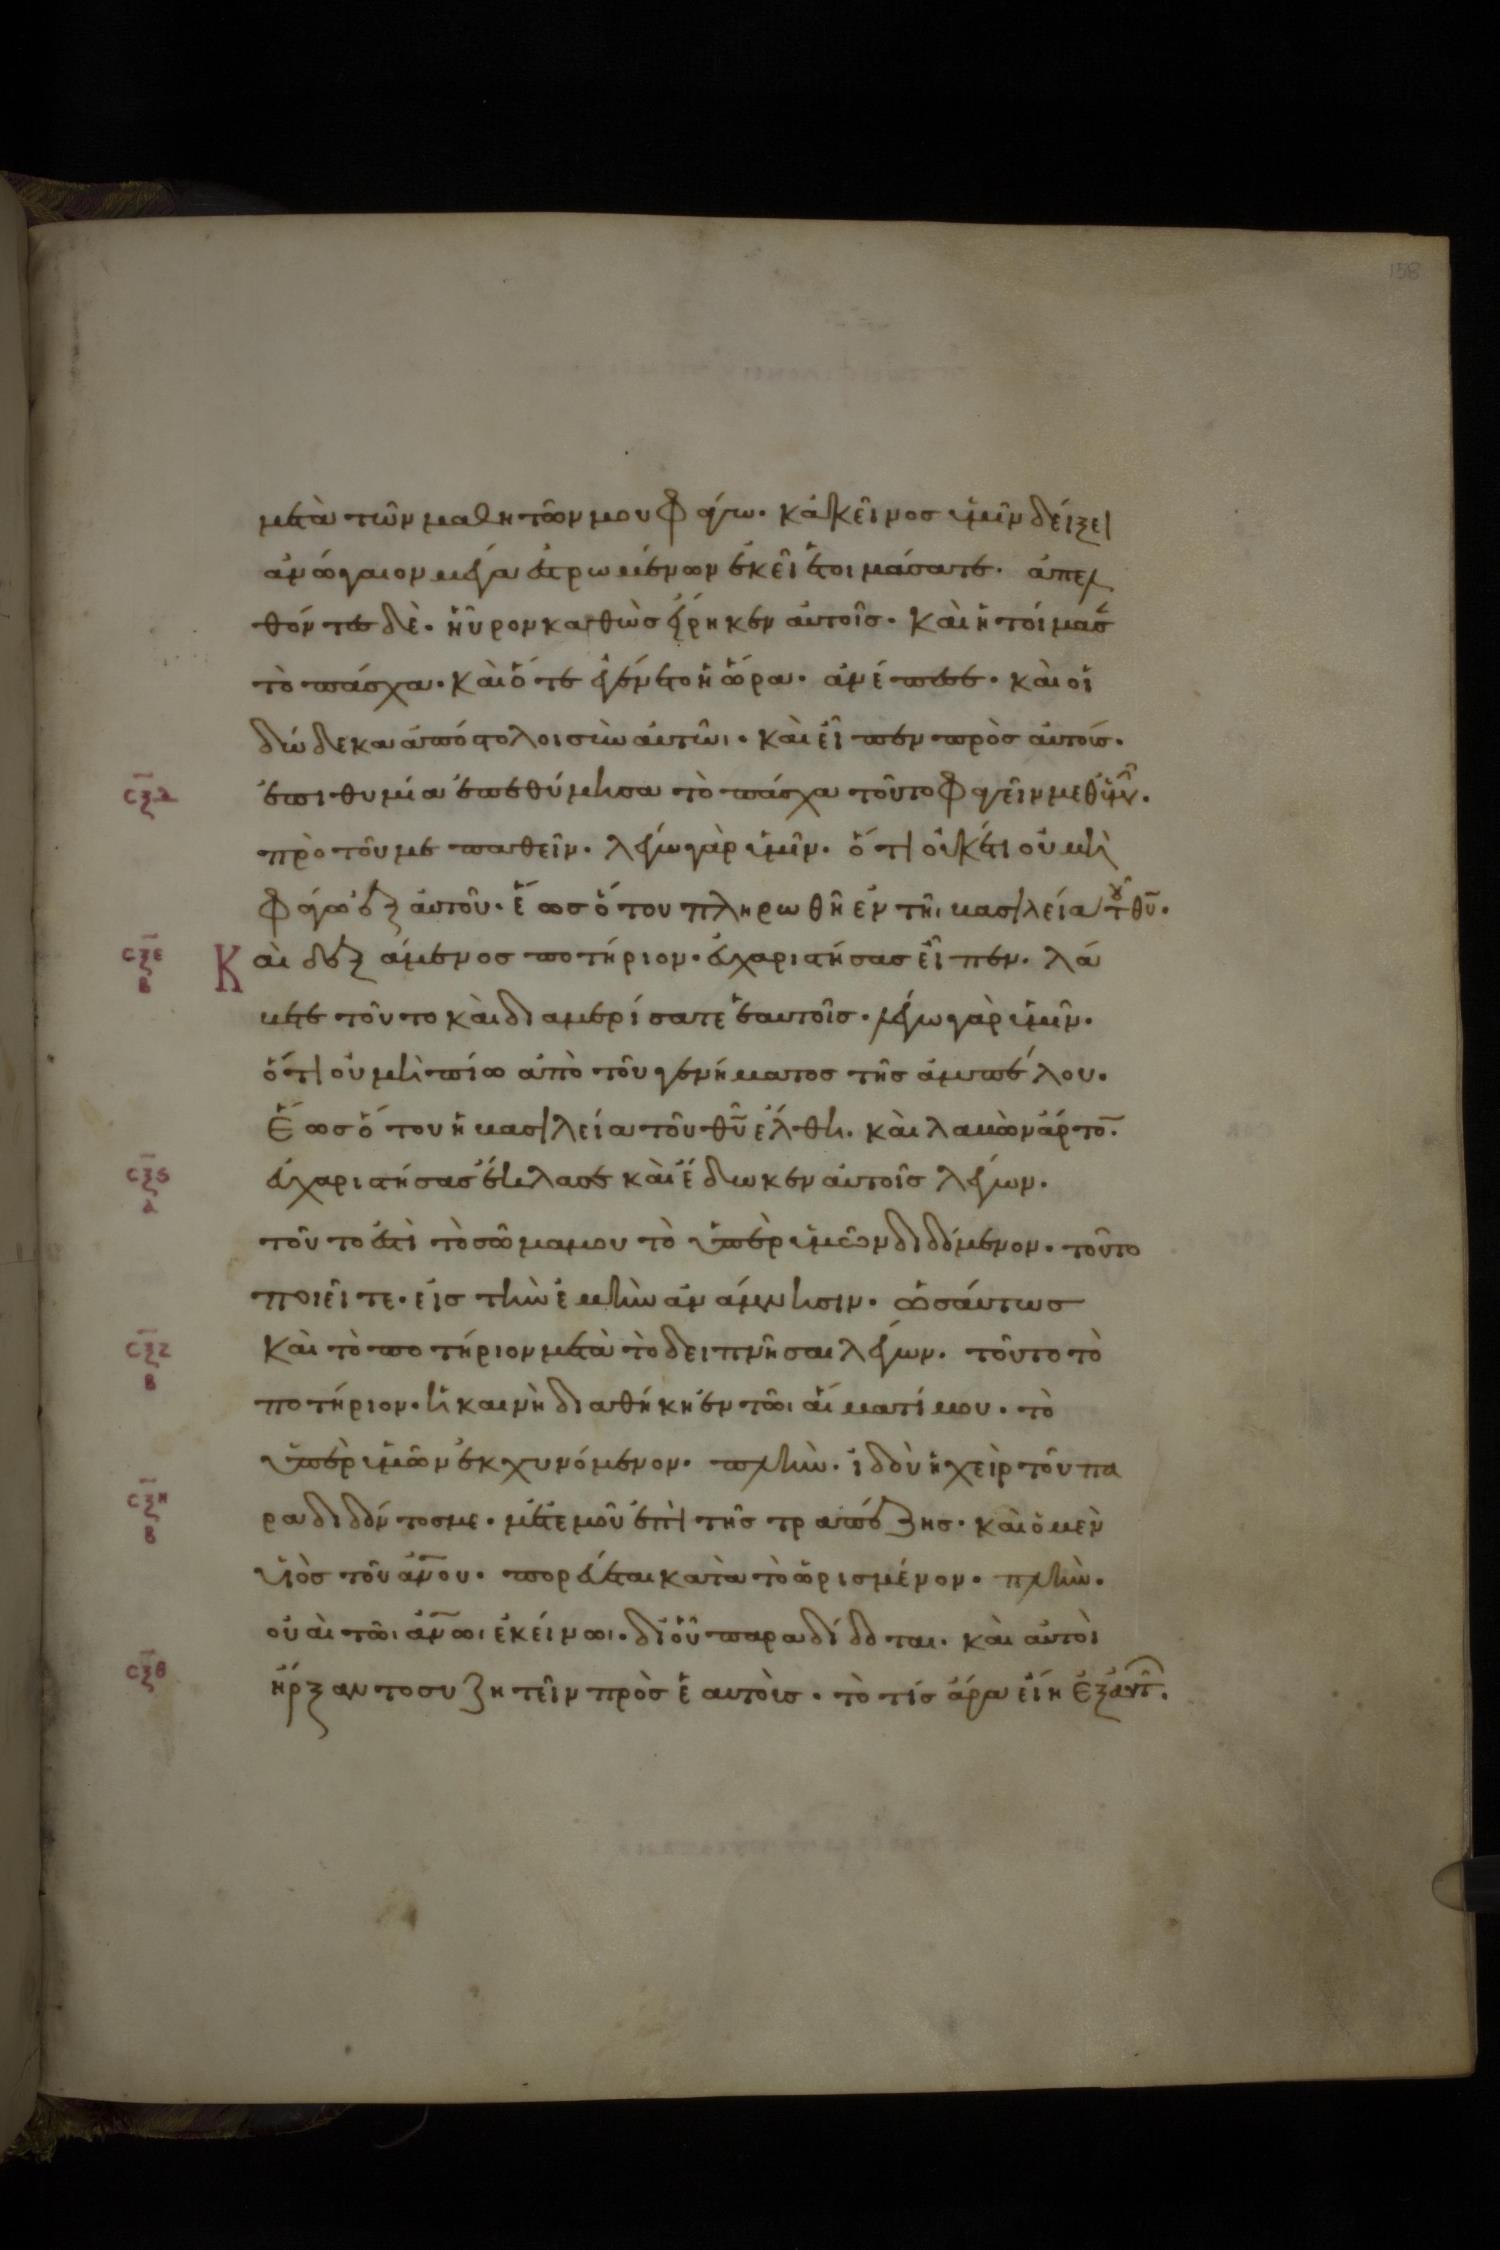 158
μετὰ τῶν μαθητῶν μου φάγω· κἀκεῖνος ὑμῖν δείξει
ἀνώγαιον μέγα ἐστρωμένον ἐκεῖ ἑτοιμάσατε· ἀπελ
θόντες δὲ· ηὗρον καθὼς εἴρηκεν αὐτοῖς· καὶ ἡτοίμασ
τὸ πάσχα· καὶ ὅτε ἐγένετο ἡ ὥρα· ἀνέπεσε· καὶ οἱ
δώδεκα ἀπόστολοι σὺν αὐτῶι· καὶ εἶπεν πρὸς αὐτούς·
σξδ ἐπιθυμία ἐπεθύμησα τὸ πάσχα τοῦτο φαγεῖν μεθ ὑμῶν·
πρὸ τοῦ με παθεῖν· λέγω γὰρ ὑμῖν· ὅτι οὐκέτι οὐ μὴ
φάγω ἐξ αὐτοῦ· ἕως ὅτου πληρωθῆ ἐν τῆι βασιλεία τοῦ θυ·
σξε β Καὶ δεξάμενος ποτήριον· εὐχαριστήσας εἶπεν· λά
βετε τοῦτο καὶ διαμερίσατε ἑαυτοῖς· λέγω γὰρ ὑμῖν·
ὅτι οὐ μὴ πίω ἀπὸ τοῦ γενήματος τῆς ἀμπέλου·
ἕως ὅτου ἡ βασιλεία τοῦ θῦ ἔλθη· καὶ λαβὼν ἄρτο̄·
σξς α εὐχαριστήσας ἔκλασε καὶ ἔδωκεν αὐτοῖς λέγων·
τοῦτο ἐστὶ τὸ σῶμα μου τὸ ὑπὲρ ὑμῶν διδόμενον· τοῦτο
ποιεῖτε· εἰς τὴν ἐμὴν ἀνάμνησιν· ὡσαύτως
σξζ β καὶ τὸ ποτήριον μετὰ τὸ δειπνῆσαι λέγων· τοῦτο τὸ
ποτήριον· ἡ καινὴ διαθήκη ἐν τῶι αἵματί μου· τὸ
ὑπὲρ ὑμῶν ἐκχυνόμενον· πλὴν· ἰδοὺ ἡ χεὶρ τοῦ πα
σξη β ραδιδόντος με· μετ ἐμοῦ ἐπὶ τῆς τραπέζης· καὶ ὁ μὲν
υἱὸς τοῦ ἀν̄ου· πορεύεται κατὰ τὸ ὡρισμένον· πλὴν·
οὐαὶ τῶι ἀν̄ωι ἐκείνωι· δι οὗ παραδίδοται· καὶ αὐτοὶ
σξθ ἤρξαντο συζητεῖν πρὸς ἑαυτοὺς· τὸ τίς ἄρα εἴη ἐξ αὐτ̑·